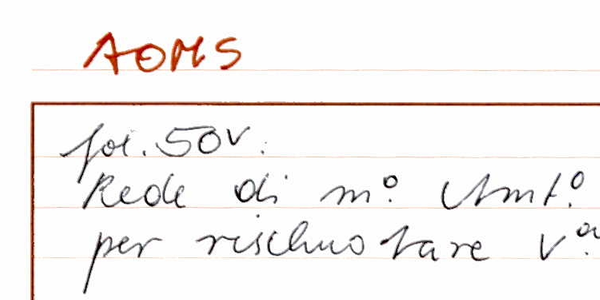 AOMS
fol. 50v.
Rede di m.o Ant.o
per rischuotare v.a